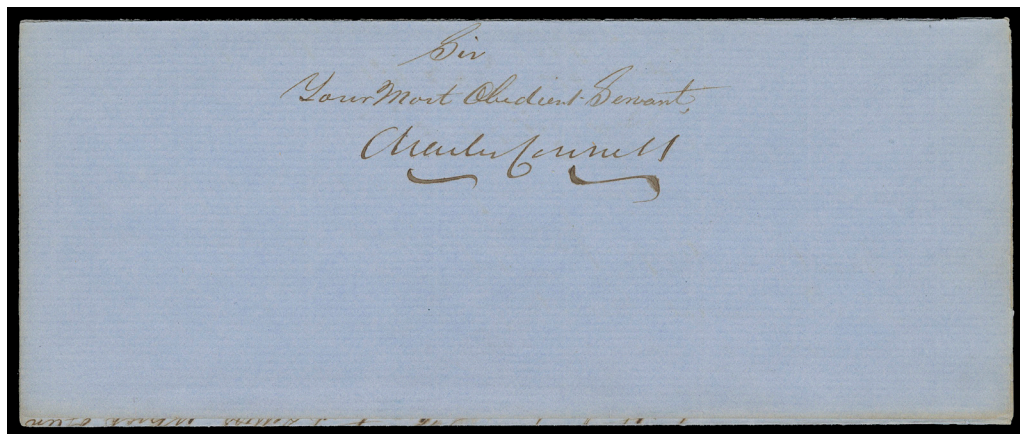 Sir
Your Most Obedient Servant,
Charles Connell